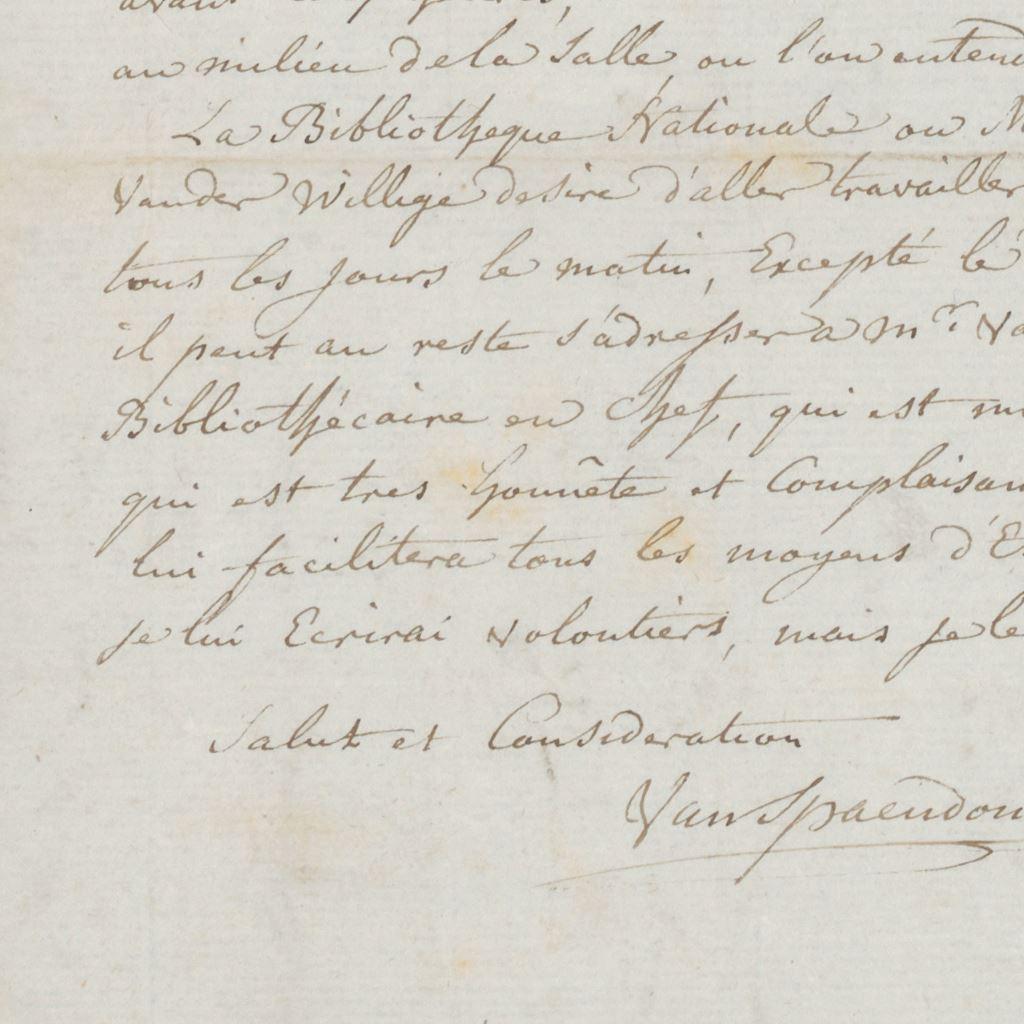 au milieu de la Salle, ou l'on entend
La Bibliotheque Nationale ou M
Vander Willige desire d'aller travailler
tous les jours le matin, Excepté le
il peut au reste s'adresser a Mr. Va
Bibliothécaire en Chef, qui est
qui est tres honnête et Complaisan
lui facilitera tous les moyens d'E
je lui Ecrirai volontiers, mais je le
Salut et Consideration
Van Spaendon